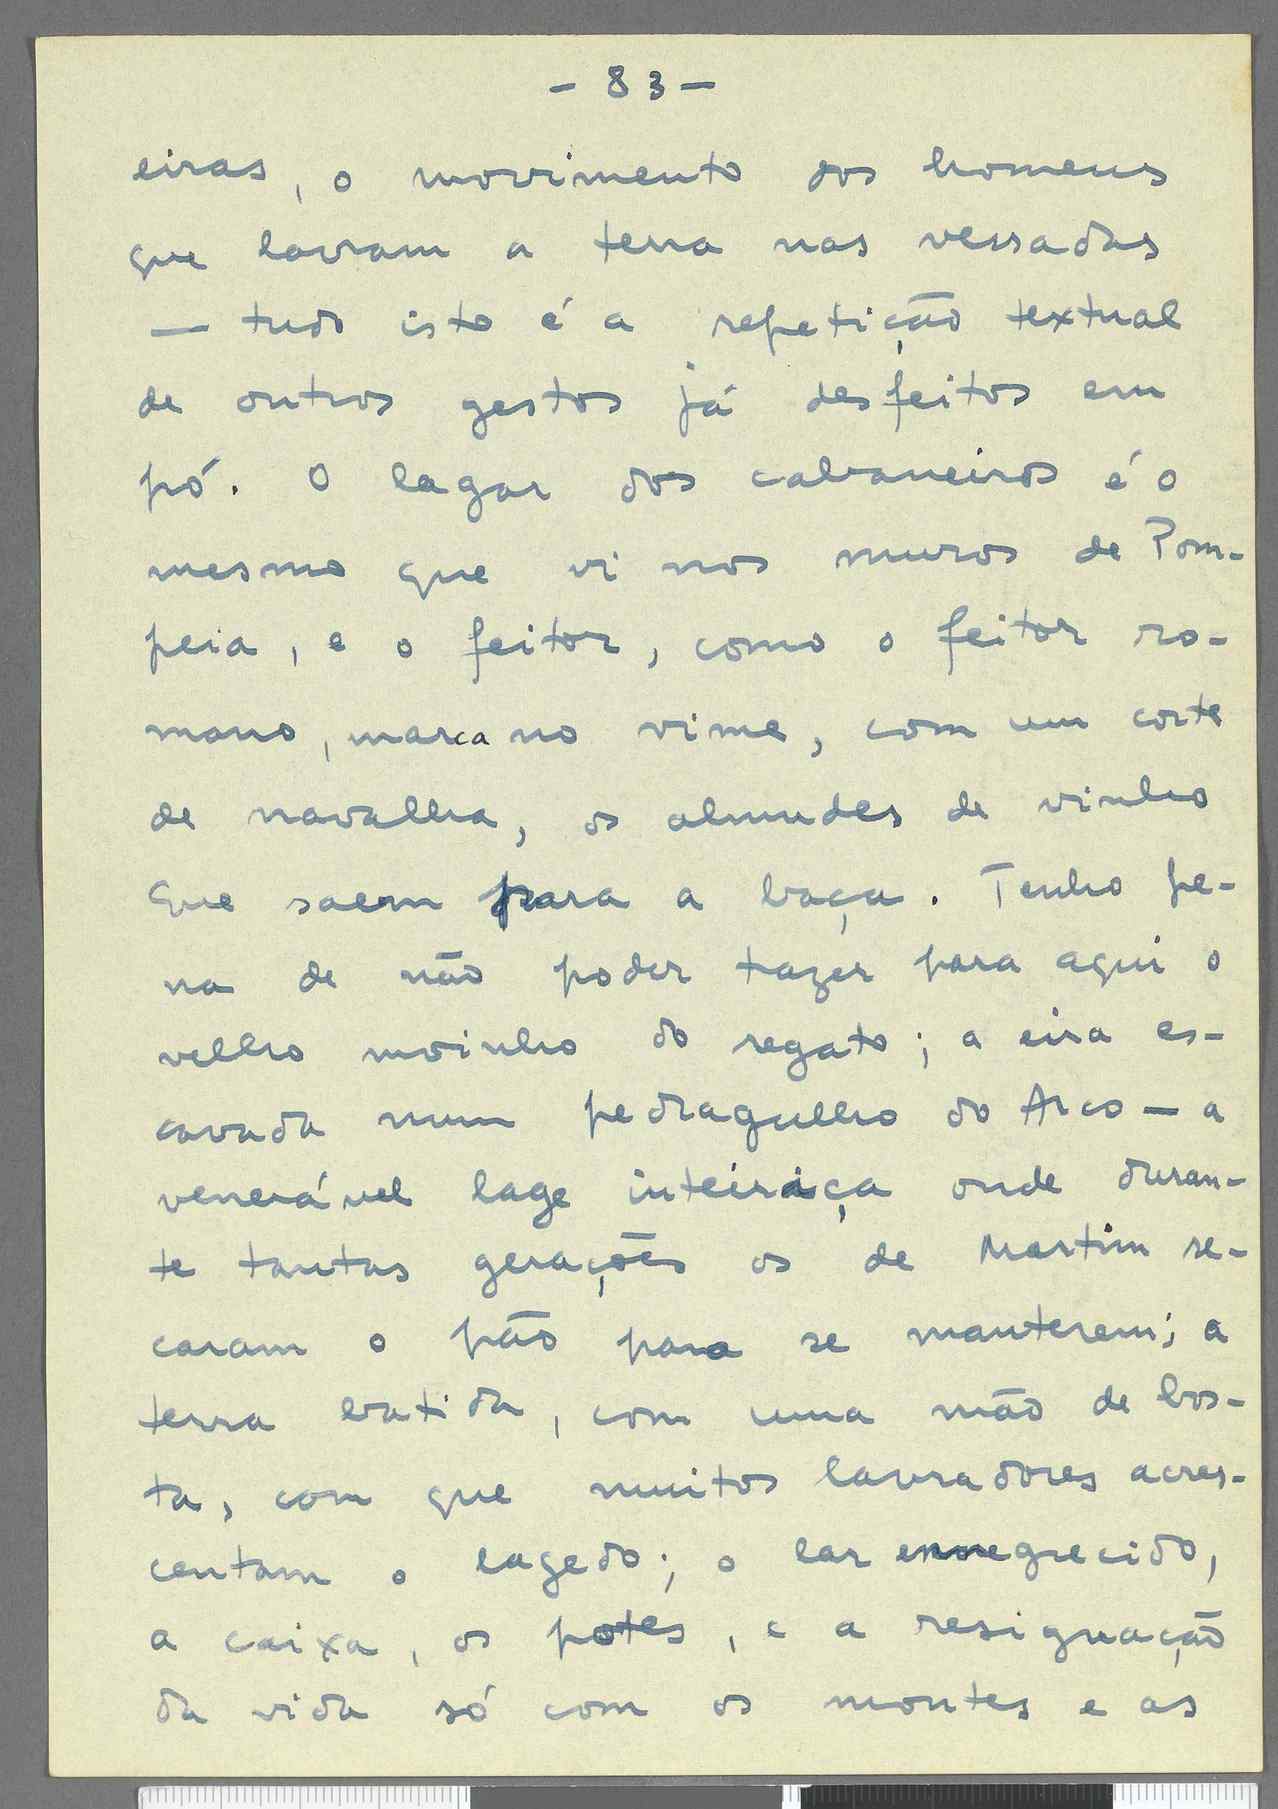 - 83 -
eiras, o movimento dos homens
que lavram a terra nas vessadas
— tudo isto é a repetição textual
de outros gestos já desfeitos em
pó. O lagar dos cabaneiros é o
mesmo que vi nos muros de Pom-
peia, e o feitor, como o feitor ro-
mano, marca no vime, com um corte
de navalha, os almudes de vinho
que saem para a baça. Tenho pe-
na de não poder trazer para aqui o
velho moinho do regato; a eira es-
cavada num pedragulho do Arco — a
venerável lage inteiriça onde duran-
te tantas gerações os de Martim se-
caram o pão para se manterem; a
terra batida, com uma mão de bos-
ta, com que muitos lavradores acres-
centam o lagedo; o lar ennegrecido,
a caixa, os potes, e a resignação
da vida só com os montes e as